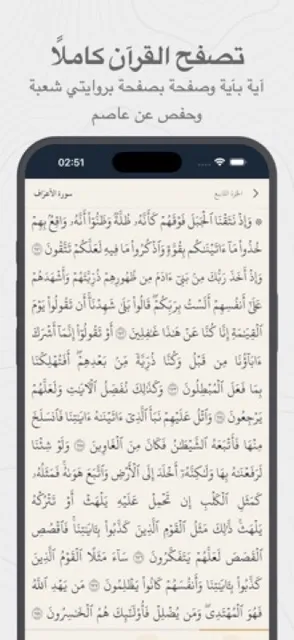 تصفح القرآن كاملاً
آية بآية وصفحة بصفحة بروايتي شعبة
وحفص عن عاصم
02:51
سورة الأعراف
الجزء التاسع
۞ وَإِذْ نَتَقْنَا ٱلْجَبَلَ فَوْقَهُمْ كَأَنَّهُۥ ظُلَّةٌ وَظَنُّوٓا۟ أَنَّهُۥ وَاقِعٌۢ بِهِمْ
خُذُوا۟ مَآ ءَاتَيْنَٰكُم بِقُوَّةٍ وَٱذْكُرُوا۟ مَا فِيهِ لَعَلَّكُمْ تَتَّقُونَ ١٧١
وَإِذْ أَخَذَ رَبُّكَ مِنۢ بَنِىٓ ءَادَمَ مِن ظُهُورِهِمْ ذُرِّيَّتَهُمْ وَأَشْهَدَهُمْ
عَلَىٰٓ أَنفُسِهِمْ أَلَسْتُ بِرَبِّكُمْ قَالُوا۟ بَلَىٰ شَهِدْنَآ أَن تَقُولُوا۟ يَوْمَ
ٱلْقِيَٰمَةِ إِنَّا كُنَّا عَنْ هَٰذَا غَٰفِلِينَ ١٧٢ أَوْ تَقُولُوٓا۟ إِنَّمَآ أَشْرَكَ
ءَابَآؤُنَا مِن قَبْلُ وَكُنَّا ذُرِّيَّةً مِّنۢ بَعْدِهِمْ أَفَتُهْلِكُنَا
بِمَا فَعَلَ ٱلْمُبْطِلُونَ ١٧٣ وَكَذَٰلِكَ نُفَصِّلُ ٱلْءَايَٰتِ وَلَعَلَّهُمْ
يَرْجِعُونَ ١٧٤ وَٱتْلُ عَلَيْهِمْ نَبَأَ ٱلَّذِىٓ ءَاتَيْنَٰهُ ءَايَٰتِنَا فَٱنسَلَخَ
مِنْهَا فَأَتْبَعَهُ ٱلشَّيْطَٰنُ فَكَانَ مِنَ ٱلْغَاوِينَ ١٧٥ وَلَوْ شِئْنَا
لَرَفَعْنَٰهُ بِهَا وَلَٰكِنَّهُۥٓ أَخْلَدَ إِلَى ٱلْأَرْضِ وَٱتَّبَعَ هَوَىٰهُ فَمَثَلُهُۥ
كَمَثَلِ ٱلْكَلْبِ إِن تَحْمِلْ عَلَيْهِ يَلْهَثْ أَوْ تَتْرُكْهُ
يَلْهَث ذَّٰلِكَ مَثَلُ ٱلْقَوْمِ ٱلَّذِينَ كَذَّبُوا۟ بِـَٔايَٰتِنَا فَٱقْصُصِ
ٱلْقَصَصَ لَعَلَّهُمْ يَتَفَكَّرُونَ ١٧٦ سَآءَ مَثَلًا ٱلْقَوْمُ ٱلَّذِينَ
كَذَّبُوا۟ بِـَٔايَٰتِنَا وَأَنفُسَهُمْ كَانُوا۟ يَظْلِمُونَ ١٧٧ مَن يَهْدِ ٱللَّهُ
فَهُوَ ٱلْمُهْتَدِى وَمَن يُضْلِلْ فَأُو۟لَٰٓئِكَ هُمُ ٱلْخَٰسِرُونَ ١٧٨